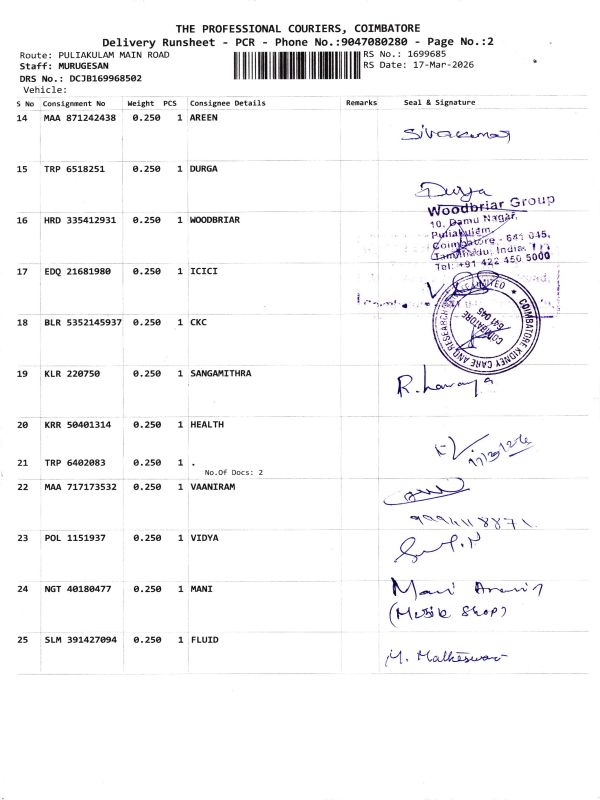 THE PROFESSIONAL COURIERS, COIMBATORE
Delivery Runsheet - PCR - Phone No.:9047080280 - Page No.:2
Route: PULIAKULAM MAIN ROAD
RS No.: 1699685
Staff: MURUGESAN
RS Date: 17-Mar-2026
DRS No.: DCJB169968502
Vehicle:
S No Consignment No Weight PCS Consignee Details Remarks Seal & Signature
14 MAA 871242438 0.250 1 AREEN
Sivakumar
15 TRP 6518251 0.250 1 DURGA
Durga
16 HRD 335412931 0.250 1 WOODBRIAR
Woodbriar Group
10, Damu Nagar,
Puliakulam,
Coimbatore - 641 045,
Tamilnadu, India
Tel: +91 422 450 5000
17 EDQ 21681980 0.250 1 ICICI
18 BLR 5352145937 0.250 1 CKC
COIMBATORE KIDNEY CARE AND RESEARCH LIMITED
COIMBATORE
641 045
19 KLR 220750 0.250 1 SANGAMITHRA
20 KRR 50401314 0.250 1 HEALTH
17/3/26
21 TRP 6402083 0.250 1 .
No.Of Docs: 2
22 MAA 717173532 0.250 1 VAANIRAM
23 POL 1151937 0.250 1 VIDYA
24 NGT 40180477 0.250 1 MANI
Mani
(Music Shop)
25 SLM 391427094 0.250 1 FLUID
M. Matheswar